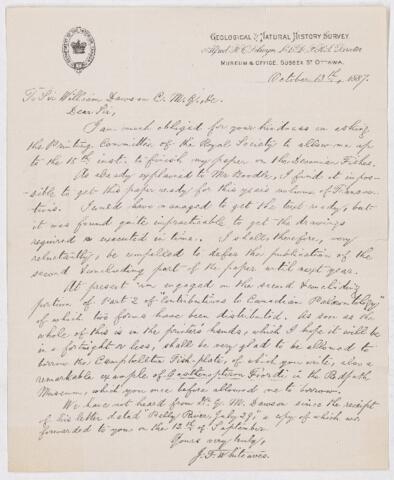 GEOLOGICAL & NATURAL HISTORY SURVEY
Alfred R. C. Selwyn L.L.D. F.R.S. Director
MUSEUM & OFFICE, SUSSEX ST OTTAWA.
October 13th, 1887.
To Sir William Dawson C. M. G. &c.
Dear Sir,
I am much obliged for your kindness in asking
the Printing Committee of the Royal Society to allow me up
to the 15th inst. to finish my paper on the Devonian Fishes.
As already explained to Mr Bourdle, I found it impos-
sible to get this paper ready for this years volume of Transac-
tions. I could have managed to get the text ready, but
it was found quite impracticable to get the drawings
required executed in time. I shall, therefore, very
reluctantly, be compelled to defer the publication of the
second & concluding part of the paper until next year.
At present am engaged on the second & concluding
portion of Part 2 of "Contributions to Canadian Palaeontology"
of which two forms have been distributed. As soon as the
whole of this is in the printers hands, which I hope it will be
in a fortnight or less, shall be very glad to be allowed to
borrow the Campbellton Fish-plate, of which you write, also a
remarkable example of in the Redpath
Museum, which you once before allowed me to borrow.
We have not heard from Dr. G. M. Dawson since the receipt
of his letter dated "Pelly River, July 29," a copy of which was
forwarded to you on the 12th of September.
Yours very truly,
J. F. Whiteaves.